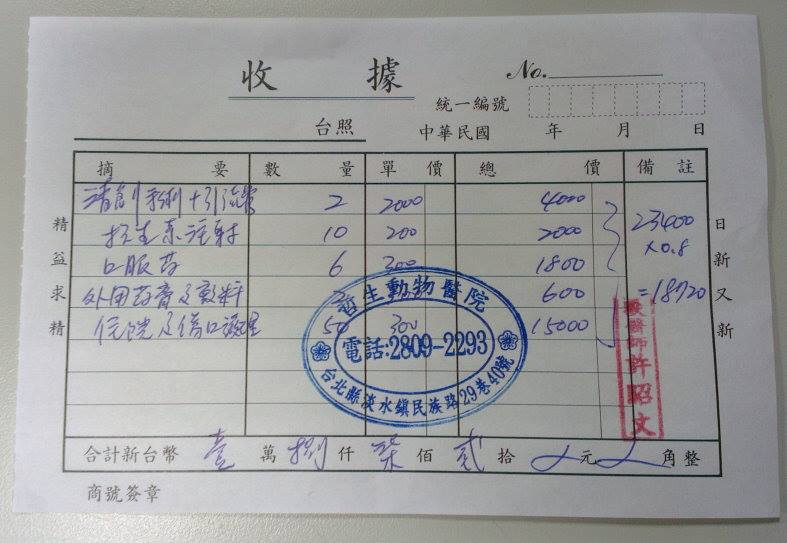 收據
No.
統一編號
台照 中華民國 年 月 日
摘要 數量 單價 總價 備註
清創手術+引流管 2 2000 4000
抗生素注射 10 200 2000
口服药 6 300 1800
外用药膏及敷料 600
住院及傷口處理 50 300 15000
23400
x0.8
=18720
精益求精
日新又新
哲生動物醫院
電話:2809-2293
台北縣淡水鎮民族路29巷40號
獸醫師許昭文
合計新台幣 壹萬捌仟柒佰貳拾 元 角整
商號簽章